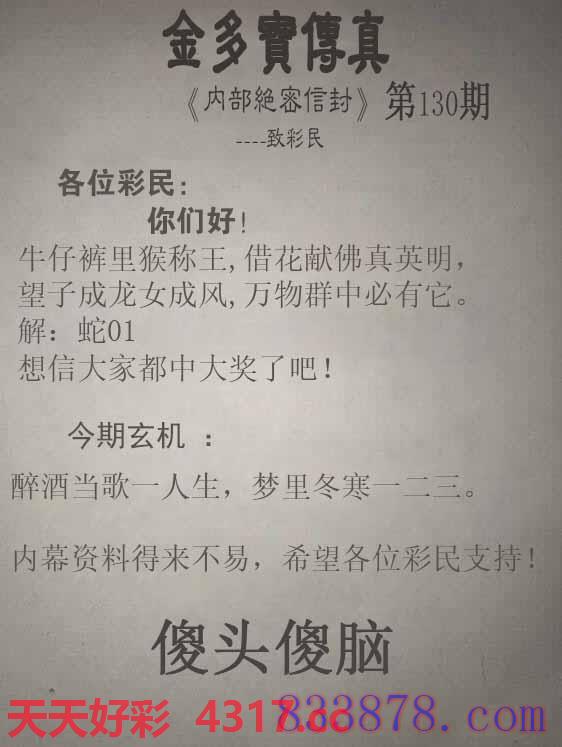 金多寶傳真
《内部絶密信封》第130期
----致彩民
各位彩民:
你们好!
牛仔裤里猴称王,借花献佛真英明,
望子成龙女成风,万物群中必有它。
解: 蛇01
想信大家都中大奖了吧!
今期玄机 :
醉酒当歌一人生, 梦里冬寒一二三。
内幕资料得来不易, 希望各位彩民支持!
傻头傻脑
天天好彩 4317.cc 833878.com